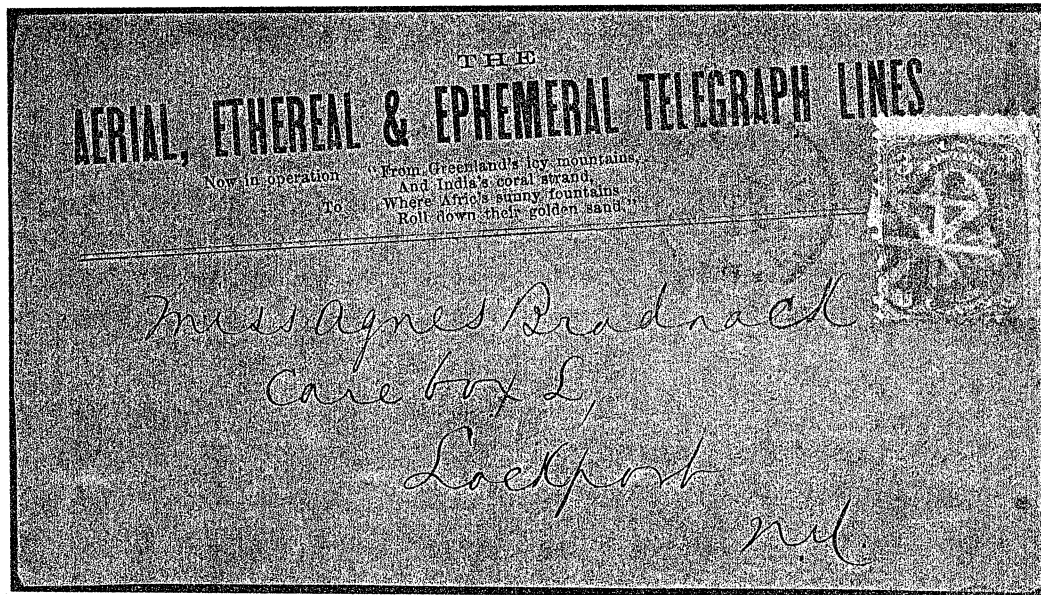 THE
AERIAL, ETHEREAL & EPHEMERAL TELEGRAPH LINES
Now in operation "From Greenland's icy mountains,
And India's coral strand,
To Where Afric's sunny fountains
Roll down their golden sand."
Miss Agnes Bradnack
Care box L,
Lockport
N.Y.